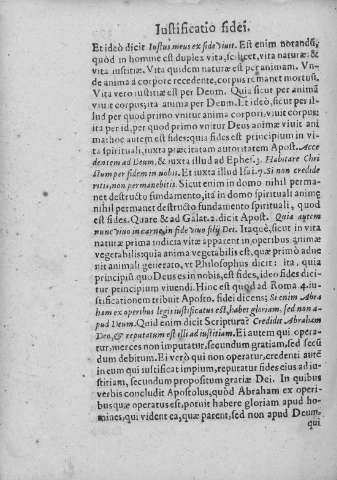 Iustificatio fidei.
Et ideò dicit Iustus meus ex fide viuit. Est enim notandū,
quòd in homine est duplex vita, scilicet, vita naturæ: &
vita iustitiæ. Vita quidem naturæ est per animam. Vn-
de anima à corpore recedente, corpus remanet mortuũ.
Vita vero iustitiæ est per Deum. Quia sicut per animã
viuit corpus; ita anima per Deum. Et ideò, sicut per il-
lud per quod primo vnitur anima corpori, viuit corpus;
ita per id, per quod primo vnitur Deus animæ viuit ani-
ma: hoc autem est fides; quia fides est principium in vi-
ta spirituali, iuxta præcitatam autoritatem Apost. Acce
dentem ad Deum, & iuxta illud ad Ephes. 3. Habitare Chri
stum per fidem in vobis. Et iuxta illud Isai. 7. Si non credide
ritis, non permanebitis. Sicut enim in domo nihil perma-
net destructo fundamento, ità in domo spirituali, animę
nihil permanet destructo fundamento spirituali, quod
est fides. Quare & ad Galat. 2. dicit Apost. Quia autem
nunc viuo in carne, in fide viuo filij Dei. Itaquè, sicut in vita
naturæ prima indicia vitæ apparent in, operibus animæ
vegetabilis: quia anima vegetabilis est, quæ primò adue
nit animali generato, vt Philosophus dicit: ita, quia
principiũ quo Deus es in nobis, est fides, ideo fides dici
tur principium viuendi. Hinc est quod ad Roma 4. iu-
stificationem tribuit Aposto. fidei dicens; Si enim Abra
ham ex operibus legis iustificatus est, habet gloriam, sed non a-
pud Deum. Quid enim dicit Scriptura? Credidit Abraham
Deo, & reputatum est illi ad iustitiam. Ei autem qui opera-
tur, merces non imputatur, secundum gratiam, sed secũ
dum debitum. Ei verò qui non operatur, credenti autē
in eum qui iustificat impium, reputatur fides eius ad iu-
stitiam, secundum propositum gratiæ Dei. In quibus
verbis concludit Apostolus, quòd Abraham ex operi-
bus quæ operatus est, potuit habere gloriam apud ho-
mines, qui vident ea, quæ parent, sed non apud Deum,
qui